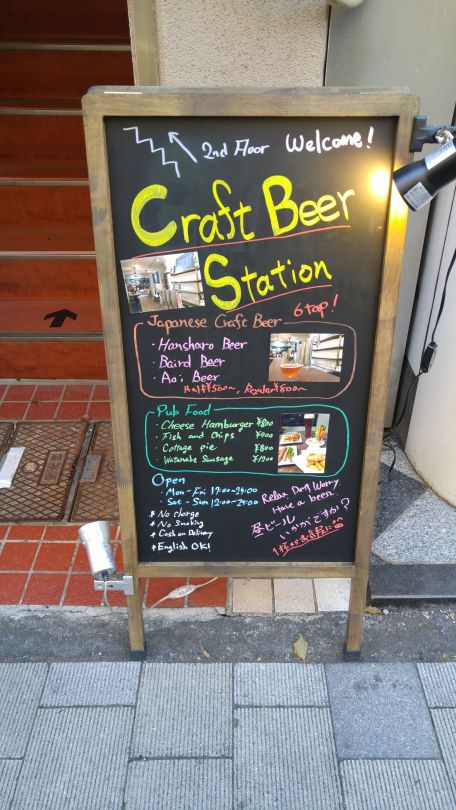 2nd Floor Welcome!
Craft Beer
Station
6 tap!
Japanese Craft Beer
・Hansharo Beer
・Baird Beer
・Aoi Beer
Half ¥500～, Regular ¥800～
Pub Food
・Cheese Hamburger ¥800
・Fish and Chips ¥900
・Cottage pie ¥800
・Watanabe Sausage ¥1900
Open
・Mon - Fri 17:00～24:00
・Sat - Sun 12:00～24:00
* No charge
* No Smoking
* Cash on Delivery
* English OK!
Relax Don't Worry.
Have a beer.
昼ビール
いかがですか?
1杯からお気軽に